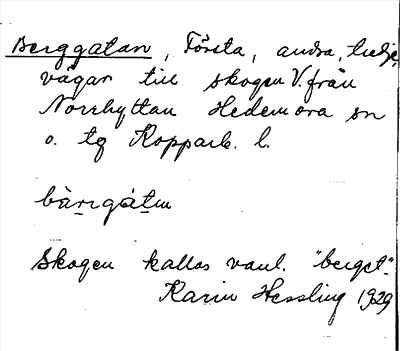 Berggatan, Första, andra, tredje,
vägar till skogen V. från
Norrhyttan Hedemora sn
o. tg Kopparb. l.
bàrrgátn
Skogen kallas vanl. "berget".
Karin Hessling 1929